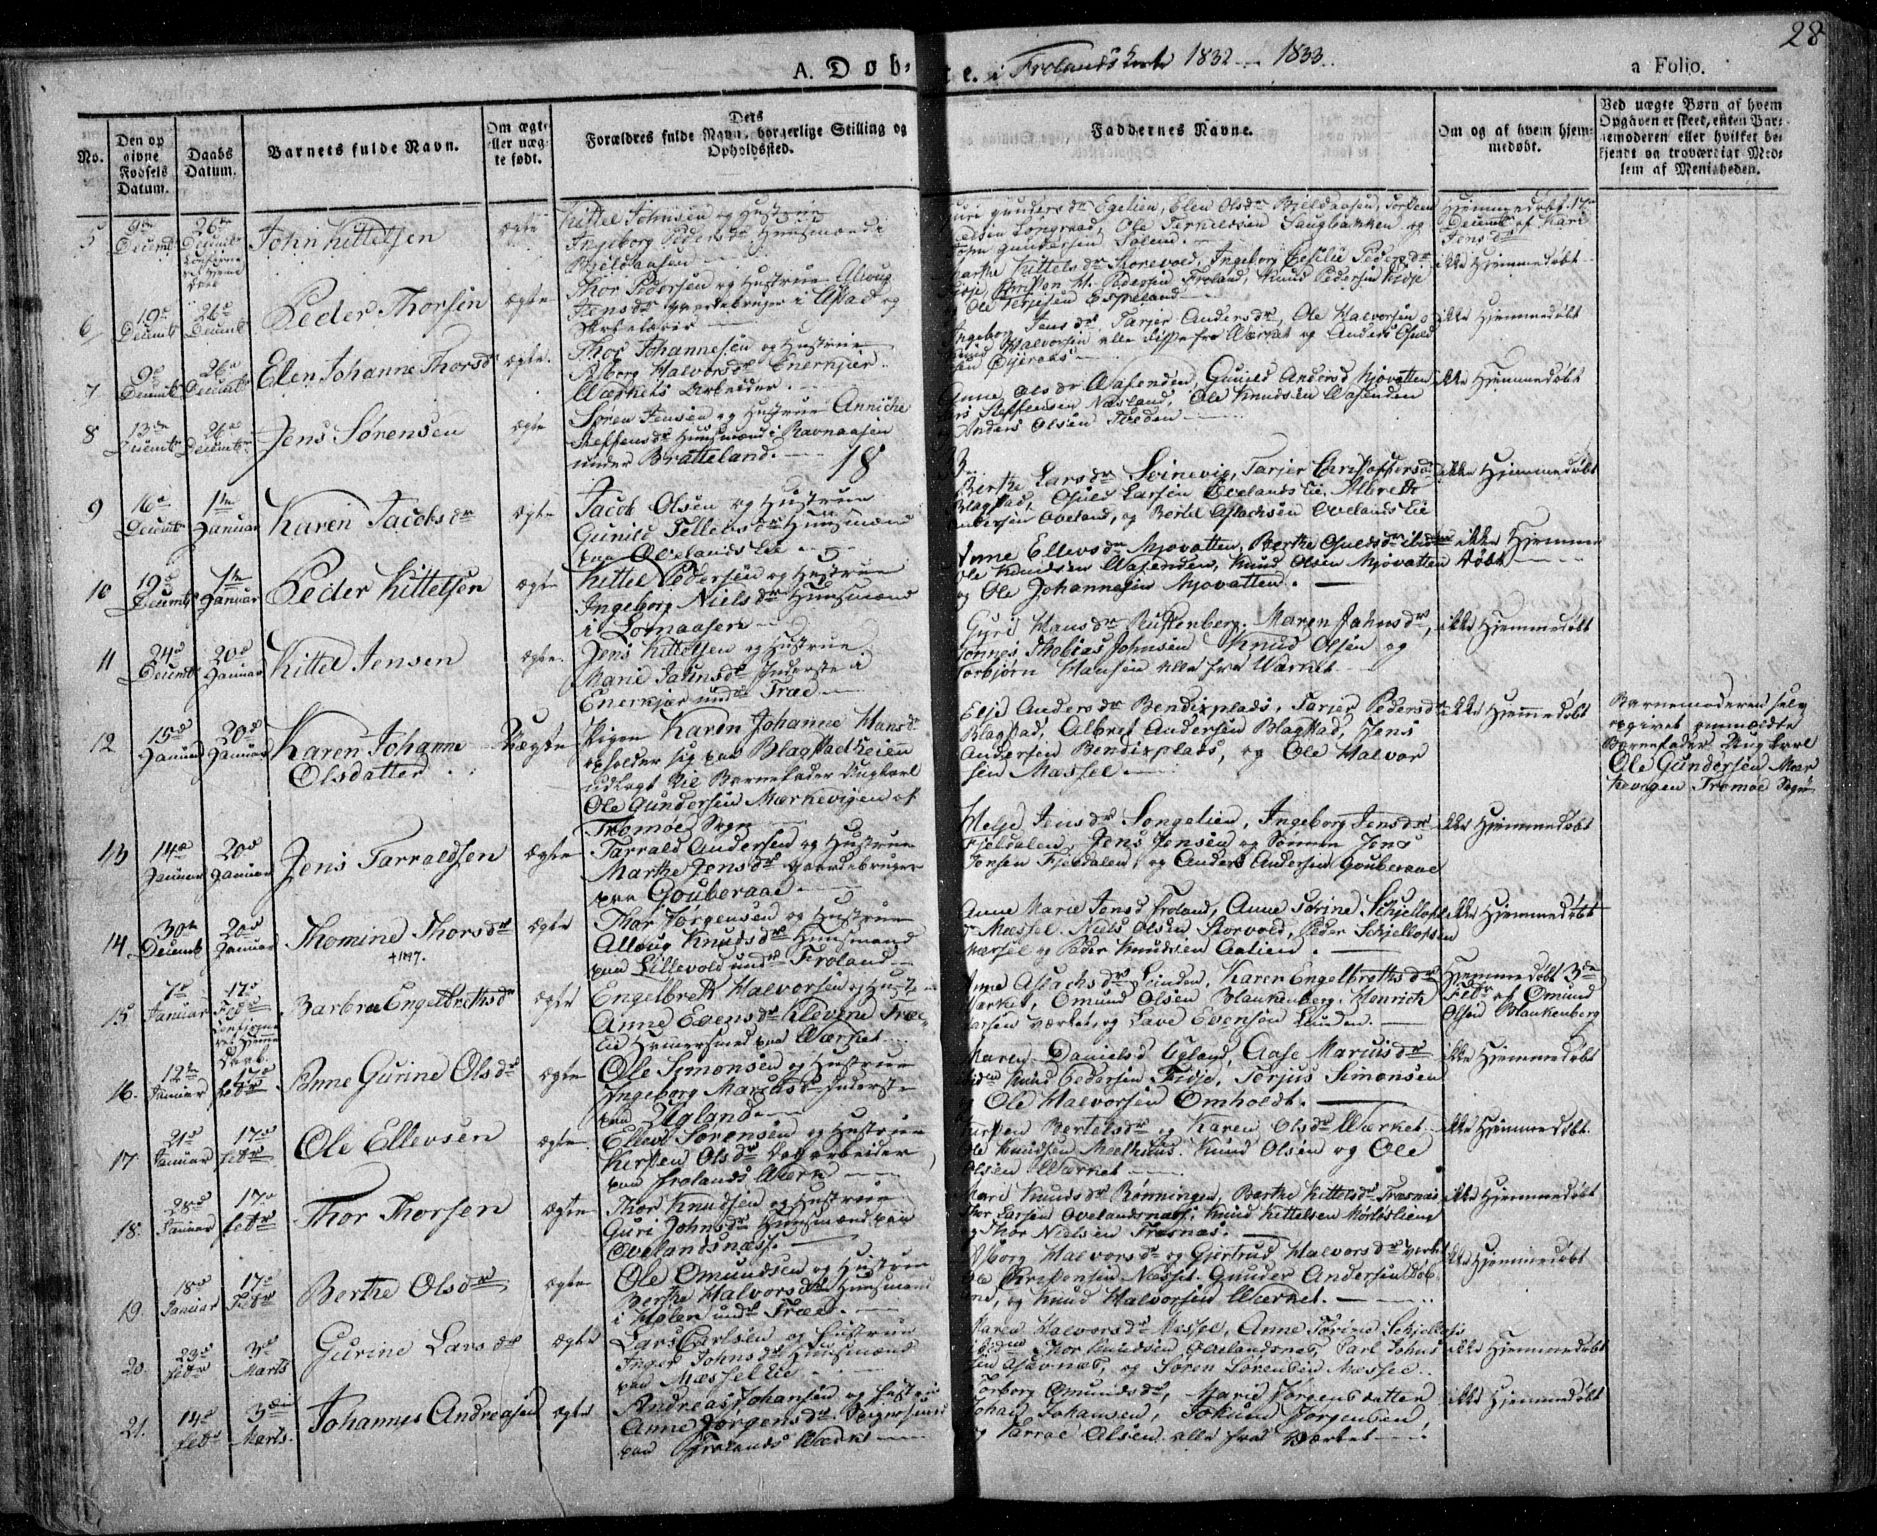 28
A. Døb- te. i Frolands Kirke 1832 — 1833.
a Folio.
No.
Den op
givne
Fødsels
Datum.
Daabs
Datum.
Barnets fulde Navn.
Om ægte
eller uæg-
te født.
Forældres fulde Navn, borgerlige Stilling og
Opholdssted.
Faddernes Navne.
Om og af hvem hjem-
medøbt.
Ved uægte Børn af hvem
Opgaven er skeet, enten Bar-
nemoderen eller hvilket be-
kjendt og troværdigt Med-
lem af Menigheden.
5
9de Decembr
26de Decembr
John Kittelsen
ægte
Kittel Johnsen og Hustrue
Ingeborg Pedersdr Huusmænd i
Bjeldaasen
Guri Gundersdr Egelien, Elen Olsdr Bjeldaasen,
Ole Terkeldsen Laugbakken og
John Gundersen
Hjemmedøbt 17de
Decembr af Kari
Jensdr
6
19de Decembr
26de Decembr
Peder Thorsen
ægte
Thor Pedersen og Hustrue Aslaug
Jensdr Gaardebruger i
Marthe Kittelsdr Storevold, Ingeborg Cesilie Pedersdr
Christen M. Pedersen Froland, Knud Pedersen Fidje
Ole Terjesen Espeland
ikke Hjemmedøbt
7
9de Decembr
26de Decembr
Elen Johanne Thorsdr
ægte
Thor Johannesen og Hustrue
Asborg Halvorsdr Enerkjær
Værkets Arbeider.
Ingeborg Jensdr, Tarjer Andersdr, Ole Halvorsen
Knud Halvorsen alle disse fra Værket og Anders
ikke Hjemmedøbt
8
13de Decembr
26de Decembr
Jens Sørensen
ægte
Søren Jensen og Hustrue Anniche
Steffensdr Huusmænd i Ravnaasen
under Bratteland.
Anne Olsdr Vasenden, Gunild Andersd Mjovatten
Lars Steffensen Næsland, Ole Knudsen Vasenden
og Anders Olsen Tveden
ikke Hjemmedøbt
18 33.
9
16de Decembr
1ste Januar
Karen Jacobsdr
ægte
Jacob Olsen og Hustrue
Gunild Tellefsdr Huusmænd
paa Ovelands Lie
Berthe Larsdr Svinevig, Tarjer Christoffersdr
Blagstad, Osuld Larsen Ovelands Lie, Albreth
Andersen Oveland, og Bertel Aslachsen Ovelands Lie
ikke Hjemmedøbt
10
19de Decembr
1ste Januar
Peder Kittelsen
ægte
Kittel Pedersen og Hustrue
Ingeborg Nielsdr Huusmænd
i Lomaasen
Anne Ellevsdr Mjovatten, Berthe Osuldsdr
Ole Knudsen Vasenden, Knud Olsen Mjovatten
og Ole Johannesen Mjovatten.
ikke Hjemme
døbt
11
24de Decembr
20de Januar
Kittel Jensen
ægte
Jens Kittelsen og Hustrue
Marie Jahnsdr Inderste i
Enerkjær undr Træe
Gyri Hansdr Ruffenberg, Maren Jahnsdr,
Tønnes Thobias Johnsen Knud Olsen og
Torbjørn Hansen alle fra Værket
ikke Hjemmedøbt
12
15de Januar
20de Januar
Karen Johanne
Olsdatter
Uægte
Pigen Karen Johanne Hansdr
opholder sig paa Blagstadheien
udlagt til Barnefader Ungkarl
Ole Gundersen Mærkevigen af
Tromøe Sogn
Elje Andersdr Bendixplads, Tarjer Pedersdr
Blagstad, Albret Andersen Blagstad, Jens
Andersen Bendixplads, og Ole Halvor
sen Massel
ikke Hjemmedøbt
Barnemoderen selv
opgivet ommeldte
Barnefader Ungkarl
Ole Gundersen Mær
kevigen Tromøe Sogn
13
14de Januar
20de Januar
Jens Tarraldsen
ægte
Tarrald Andersen og Hustrue
Marthe Jensdr Gaardebruger
paa Gouberaae
Helje Jensdr Songelien, Ingeborg Jensdr
Fjeldalen, Jens Jensen og Sønnen Jens
Torsen Fjeldalen, og Anders Andersen Gouberaae
ikke Hjemmedøbt
14
30te Decembr
20de Januar
Thomine Thorsdr
ægte
Thor Jørgensen og Hustrue
Alloug Knudsdr Huusmand
paa Lillevold undr Froland
Anne Marie Jensd Froland, Anne Torine Schjellofs
Messel, Niels Olsen Storvold, Peder Schjelloffsen
Messel og Peder Knudsen Aalien.
ikke Hjemmedøbt
15
7de Januar
17de Febr
Barbroe Engelbrethsdr
ægte
Engelbreth Halvorsen og Hust
Anne Evensdr Klevene Træe
Lid Hammersmed paa Værket
Anne Aslachsdr Linden, Karen Engelbrethsdr
Værket, Omund Olsen Blankenberg, Henrich
Larsen Værket, og Lave Evensen Lunden.
Hjemmedøbt 3de
Febr af Omund
Olsen Blankenberg
16.
12te Januar
17de Febr
Anne Gurine Olsdr
ægte
Ole Simonsen og Hustrue
Ingeborg Marcusdr Inderste
paa Ugland
Maren Danielsd Ugland, Aase Marcusdr
Knud Pedersen Fidje, Terjus Simonsen
Ole Halvorsen Omholdt.
ikke Hjemmedøbt
17.
21de Januar
17de Febr
Ole Ellevsen
ægte
Ellev Sørensen og Hustrue
Kersten Olsdr Arbeider
paa Frolands Værk
Kirsten Bertelsdr og Karen Olsdr Værket
Ole Knudsen Meelhuus, Knud Olsen og Ole
Olsen Værket
ikke Hjemmedøbt.
18.
28de Januar
17de Febr
Thor Thorsen
ægte
Thor Knudsen og Hustrue
Guri Johnsdr Huusmænd paa
Ovelandsnæss.
Mari Knudsdr Rønningen, Berthe Kittelsdr Træsnæs
Thor Larsen Ovelandsnæss, Knud Kittelsen
og Thor Nielsen Træsnæs.
ikke Hjemmedøbt
19.
18de Januar
17de Febr
Berthe Olsdr
ægte
Ole Omundsen og Hustrue
Berthe Halvorsdr Huusmænd
i Hølen undr Træe.
Asborg Halvorsdr og Gjertrud Halvorsdr Værket
Ole Christensen Næsset, Gunder Andersen
og Knud Halvorsen Værket.
ikke Hjemmedøbt
20.
23de Febr
3de Marts
Gurine Larsdr
ægte
Lars Carlsen og Hustrue
Inger Johnsdr Huusmænd
paa Mæsselлie
Maren Halvorsdr Messel, Anne Torine Schjellofs
Thor Knudsen Ovelandsnæs, Carl Johns
sen Asevnæs, og Søren Sørensen Messel.
ikke Hjemmedøbt
21.
14de Febr
3die Marts.
Johannes Andreasen
ægte
Andreas Johansen og Hustrue
Anne Jørgensdr
paa Frolands Værk
Torborg Omundsdr, Marie Jørgensdatter
Johan Johansen, Jokum Jørgensen,
og Tarrae Olsen alle fra Værket
ikke Hjemmedøbt